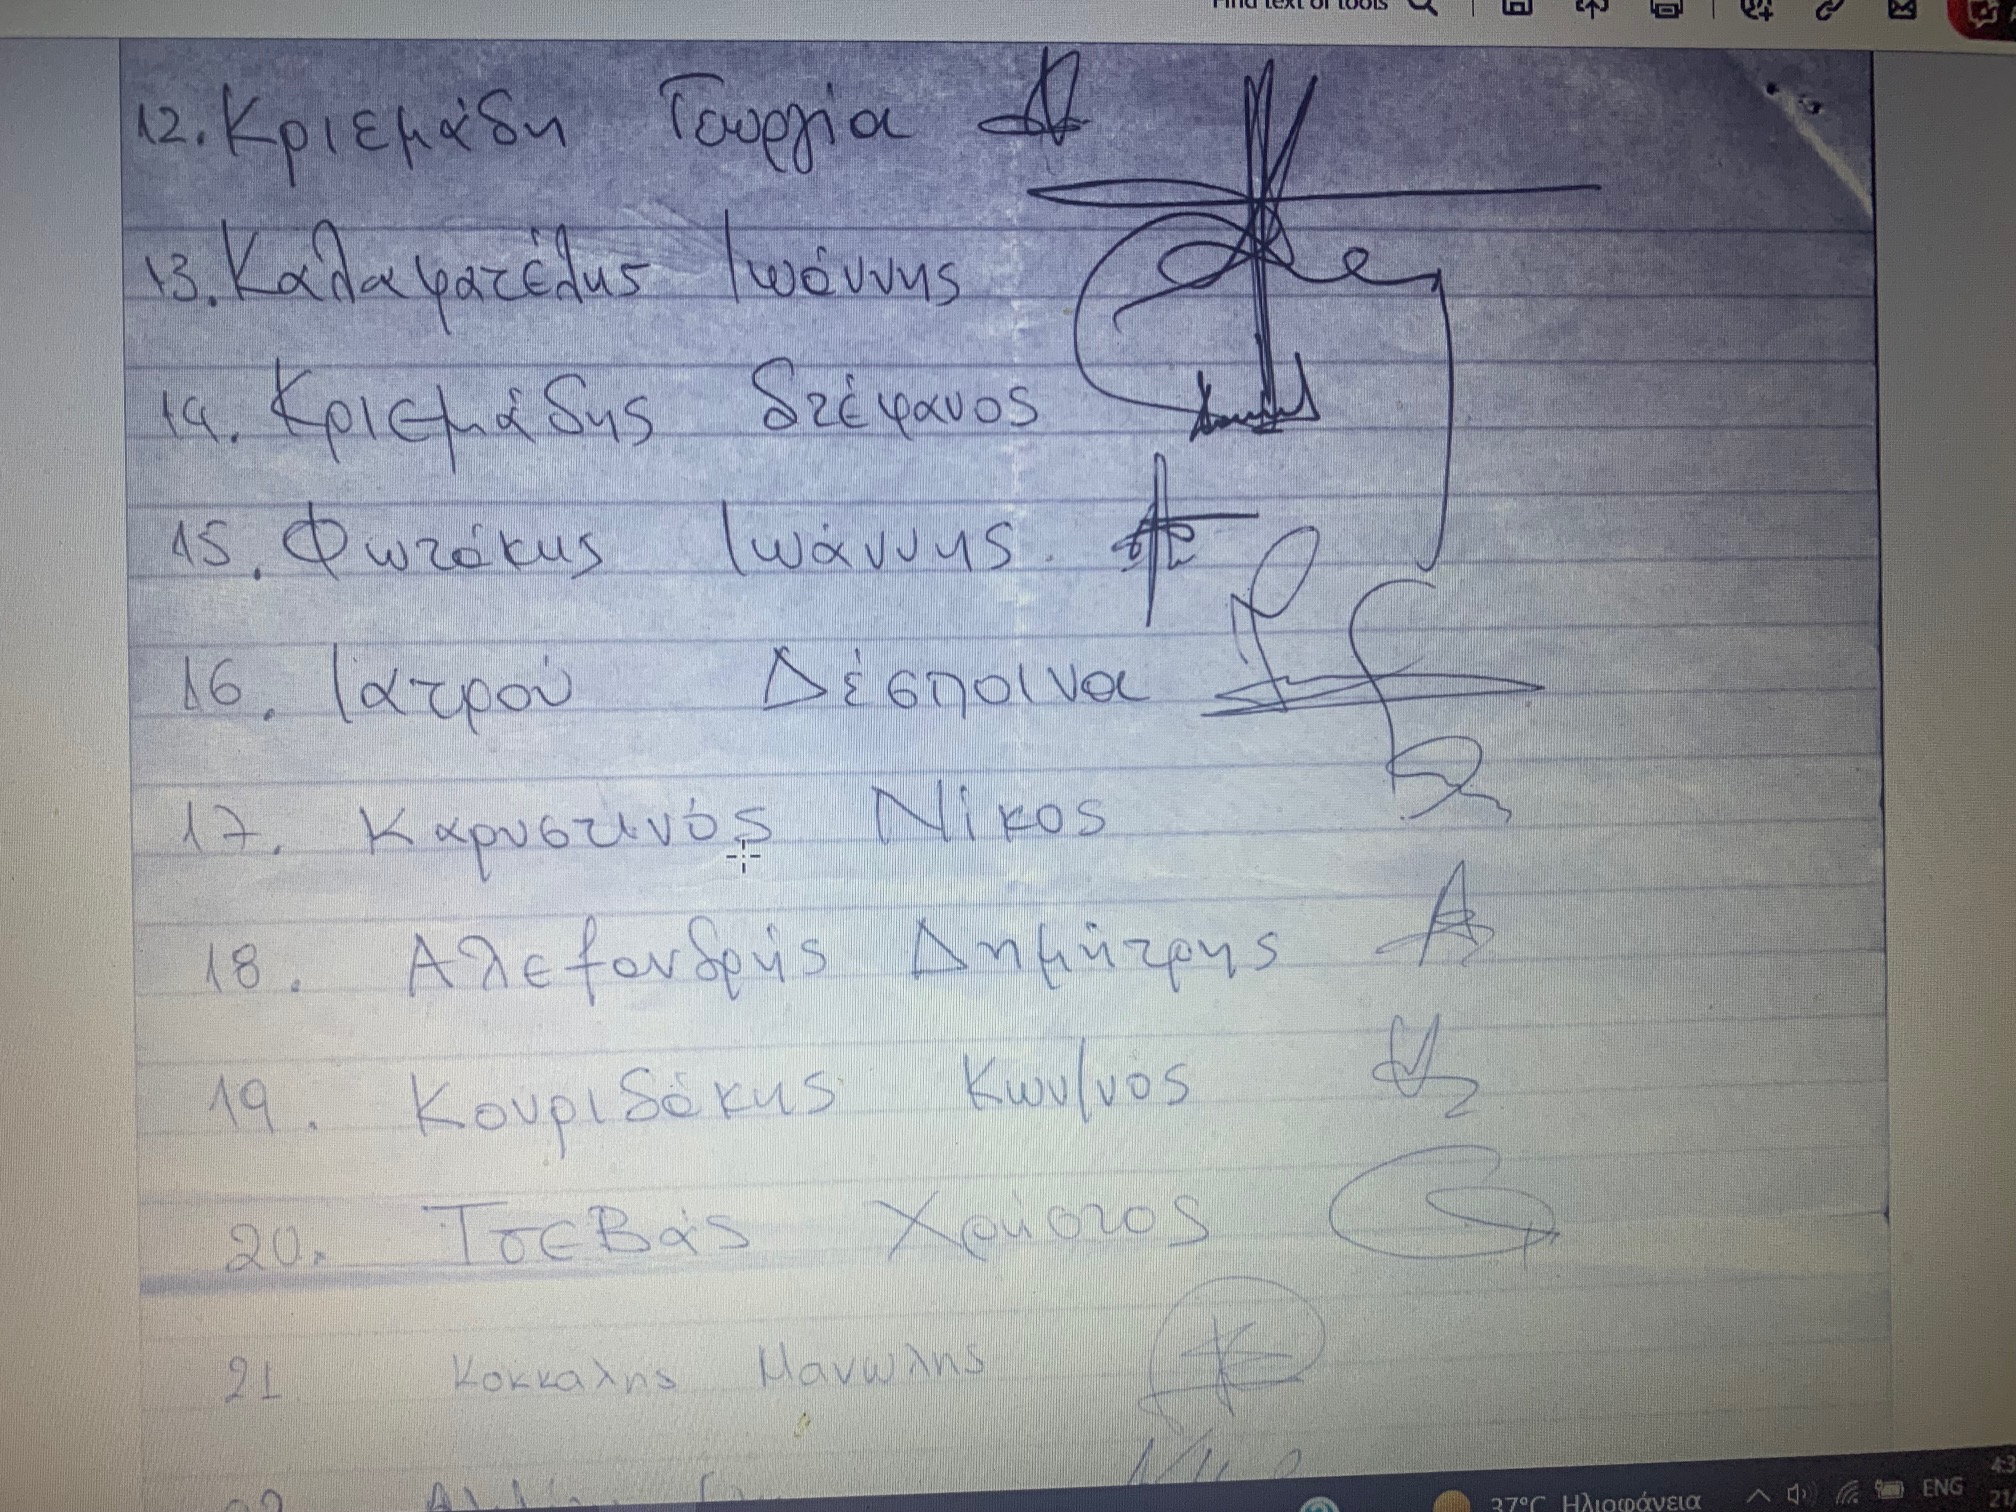 Find text or tools
12. Κριεμάδη Γεωργία
13. Καλαφατέλης Ιωάννης
14. Κριεμάδης Στέφανος
15. Φωτάκης Ιωάννης.
16. Ιατρού Δέσποινα
17. Καρυστινός Νίκος
18. Αλεξανδρής Δημήτρης
19. Κουριδάκης Κων/νος
20. Τσεβάς Χρήστος
21 Κοκκαλης Μανωλης
22
37°C Ηλιοφάνεια ENG